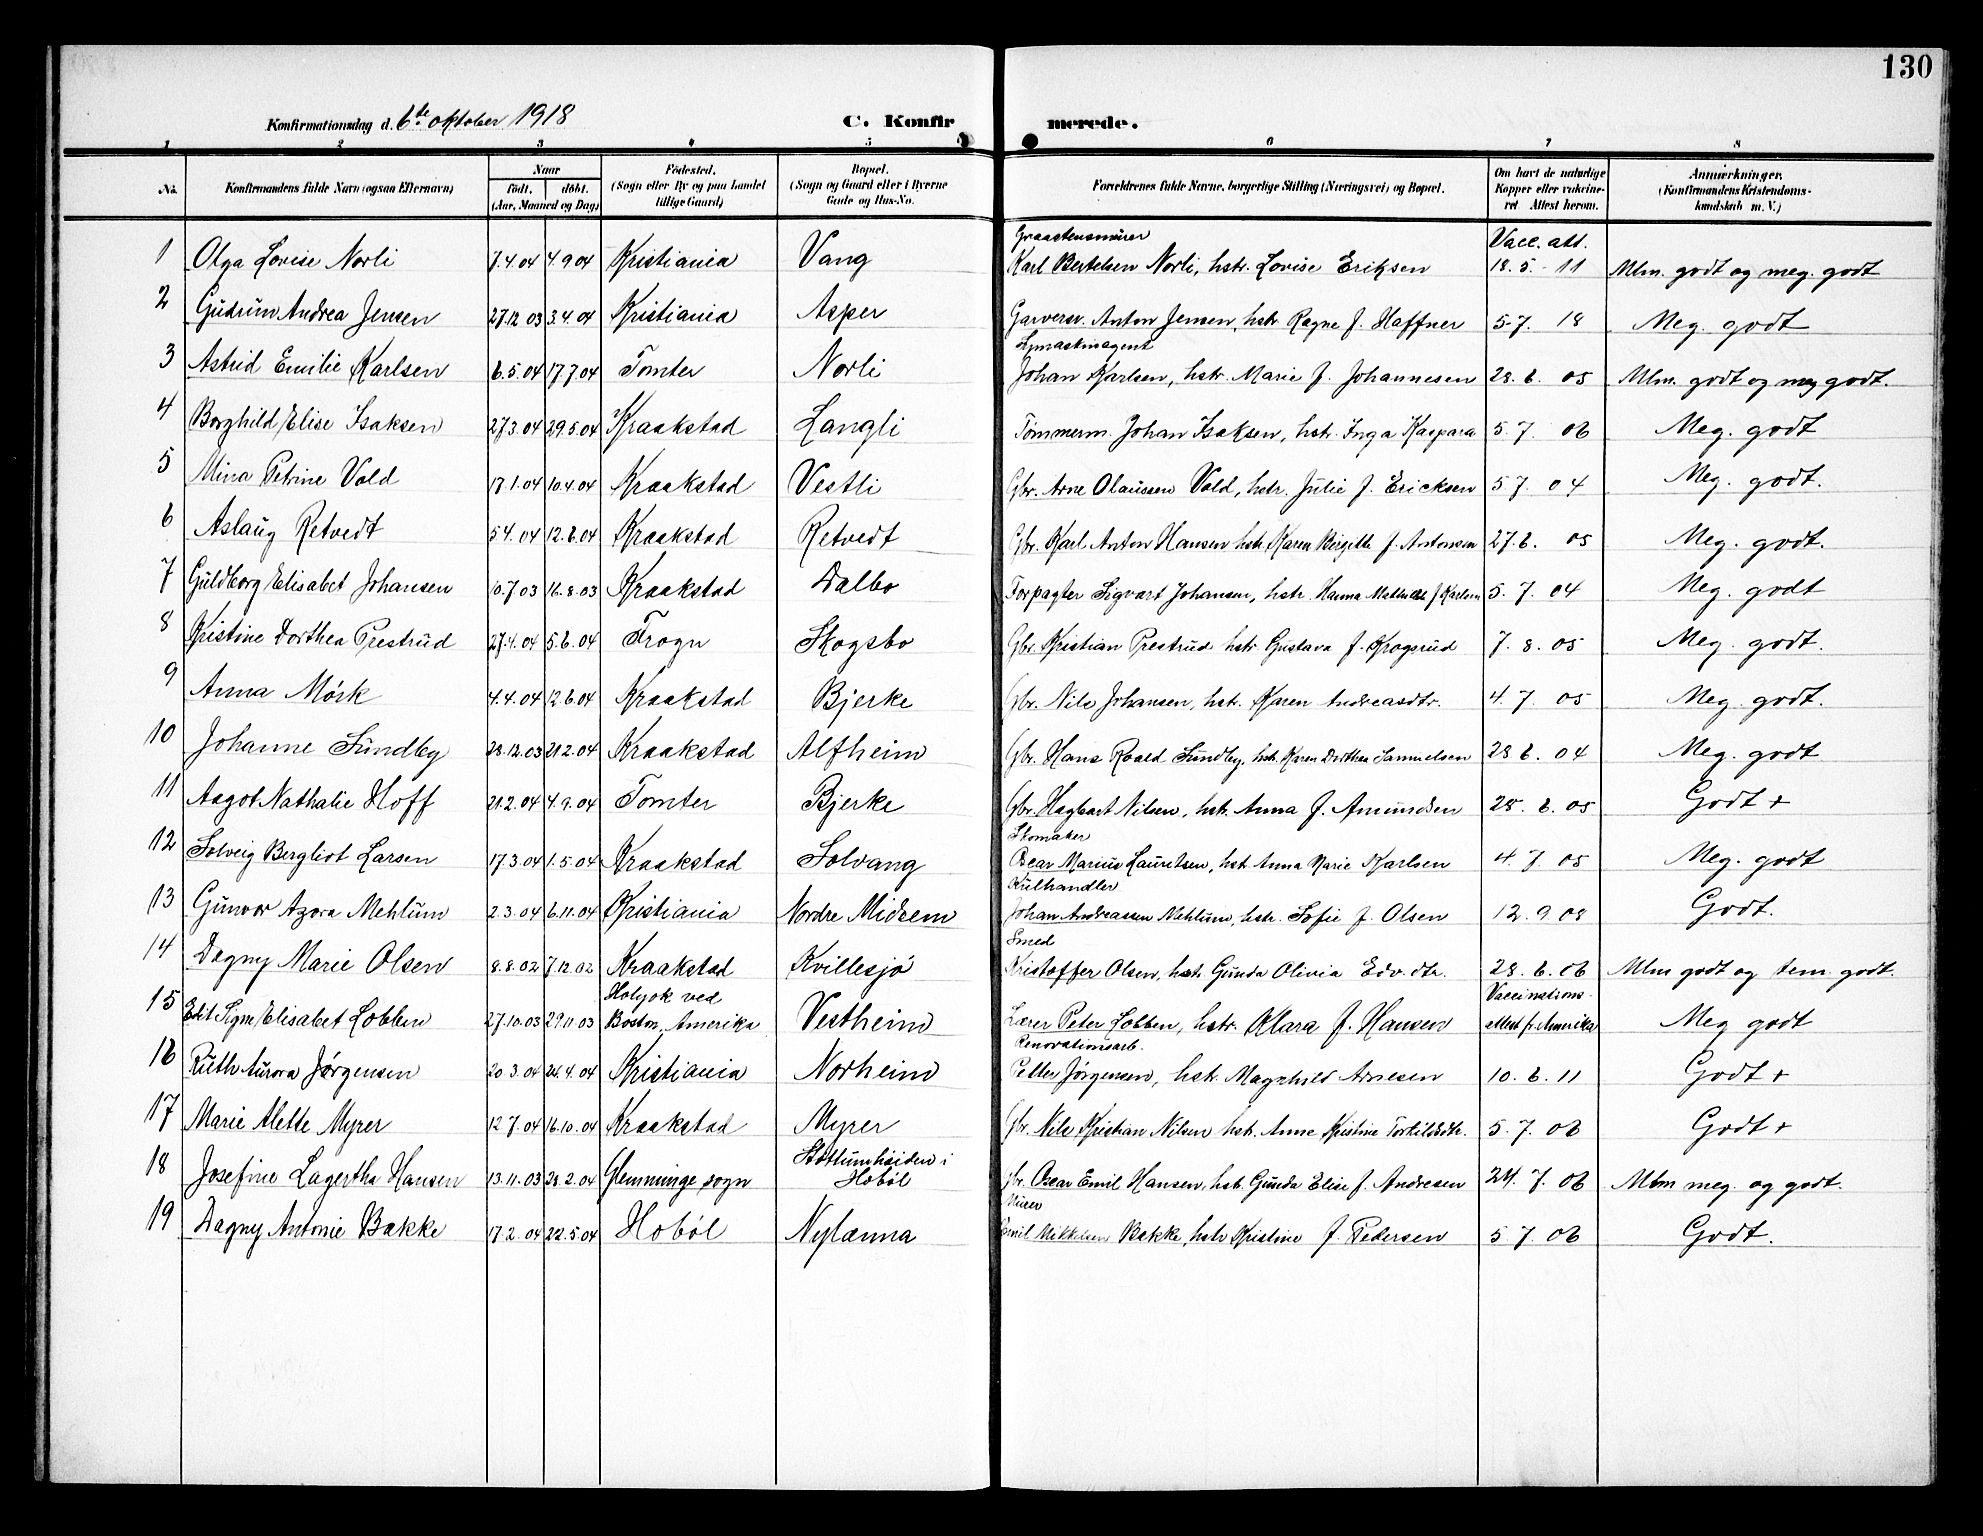 130
Konfirmationsdag d. 6te oktober 1918
C. Konfirmerede.
1 2 3 4 5 6 7 8
No. Konfirmandens fulde Navn (ogsaa Efternavn) Naar født, døbt. (Aar, Maaned og Dag) Fødested. (Sogn eller By og paa Landet tillige Gaard) Bopæl. (Sogn og Gaard eller i Byerne Gade og Hus-No. Forældrenes fulde Navne, borgerlige Stilling (Næringsvei) og Bopæl. Om havt de naturlige Kopper eller vakcineret. Attest herom. Anmærkninger. (Konfirmandens Kristendomskundskab m. V.)
Graastensmürer Vacc. att.
1 Olga Lovise Norli 7.4.04 4.9.04 Kristiania Vang Karl Bertelsen Norli, hstr. Lovise Eriksen 18.5.-11 Mlm. godt og meg. godt
2 Gudrün Andrea Jensen 27.12 03 3.4.04 Kristiania Asper Garversv. Anton Jensen, hstr. Ragna f. Haffner 5-7. 18 Meg. godt
Symaskinagent
3 Astrid Emilie Karlsen 6.5.04 17.7.04 Tomter Norli Johan Karlsen, hstr. Marie f. Johannesen 28.6. 05 Mlm. godt og meg godt.
4 Borghild Elise Isaksen 27.3.04 29.5.04 Kraakstad Langli Tömmerm. Johan Isaksen, hstr. Inga Kaspara 5.7. 06 Meg. godt
5 Mina Petrine Vold 17.1.04 10.4.04 Kraakstad Vestli Gbr. Arne Olaüssen Vold, hstr. Julie f. Ericksen 5 7. 04 Meg. godt.
6 Aslaüg Retvedt 5 4. 04 12.6.04 Kraakstad Retvedt Gbr. Karl Anton Hansen hstr. Karen Birgitte f. Antonsen 27.6. 05 Meg. godt.
7 Güldborg Elisabet Johansen 10.7.03 16.8.03 Kraakstad Dalbo Forpagter Sigvart Johansen, hstr. Hanna Mathilde f. Karlsen 5. 7. 04 Meg. godt
8 Kristine Dorthea Prestrüd 27.4.04 5.6.04 Frogn Skogsbo Gbr. Kristian Prestrüd hstr. Gustava f. Krogsrüd 7. 8. 05 Meg. godt.
9 Anna Mørk 4.4.04 12.6.04 Kraakstad Bjerke Gbr. Nils Johansen, hstr. Karen Andreasdtr. 4.7. 05 Meg. godt.
10 Johanne Sündby 28.12.03 21.2.04 Kraakstad Alfheim Gbr. Hans Roald Sündby, hstr. Karen Dorthea Samuelsen 28 6. 04 Meg. godt
11 Aagot Nathalie Hoff 21.2.04 4.9.04 Tomter Bjerke Gbr. Hagbart Nilsen, hstr. Anna f. Amündsen 28. 6. 05 Godt +
Skomaker
12 Solveig Bergliot Larsen 17.3.04 1.5.04 Kraakstad Solvang Oscar Marius Lauritsen, hst. Anna Marie Karlsen 4. 7. 05 Meg. godt
Külhandler
13 Günvor Azora Mehlüm 2.3.04 6.11.04 Kristiania Nordre Midsem Johan Andreassen Mehlüm, hstr. Sofie f. Olsen 12. 9 08 Godt.
Smed
14 Dagny Marie Olsen 8.8.02 7.12.02 Kraakstad Kvillesjø Kristoffer Olsen, hstr. Günda Olivia Edv.dtr. 28. 6. 06 Mlm godt og tem. godt.
Holyok ved Vaccinations-
15 Edit Signe Elisabet Lobben 27.10.03 29.11.03 Boston, Amerika Vestheim Lærer Peter Lobben, hstr. Klara f. Hansen attest fr. Amerika Meg godt
Renovationsarb.
16 Rüth Aurora Jørgensen 20 3.04 24.4.04 Kristiania Norheim Petter Jørgensen, hstr. Magnhild Arnesen 10. 6. 11 Godt +
17 Marie Alette Myrer 12 7.04 16.10.04 Kraakstad Myrer Gbr. Nils Kristian Nilsen hstr. Anne Kristine Torkildsdtr. 5. 7. 06 Godt +
18 Josefine Lagertha Hansen 13.11.03 28.2.04 Glemminge sogn i Hobøl Gbr. Oscar Emil Hansen, hstr. Günda Elise f. Andresen 24. 7. 06 Mlm meg. og godt.
Mürer
19 Dagny Antonie Bakke 17.2.04 22.5.04 Hobøl Nylænna Emil Mikkelsen Bakke, hstr Kristine f. Pedersen 5 7. 06 Godt.